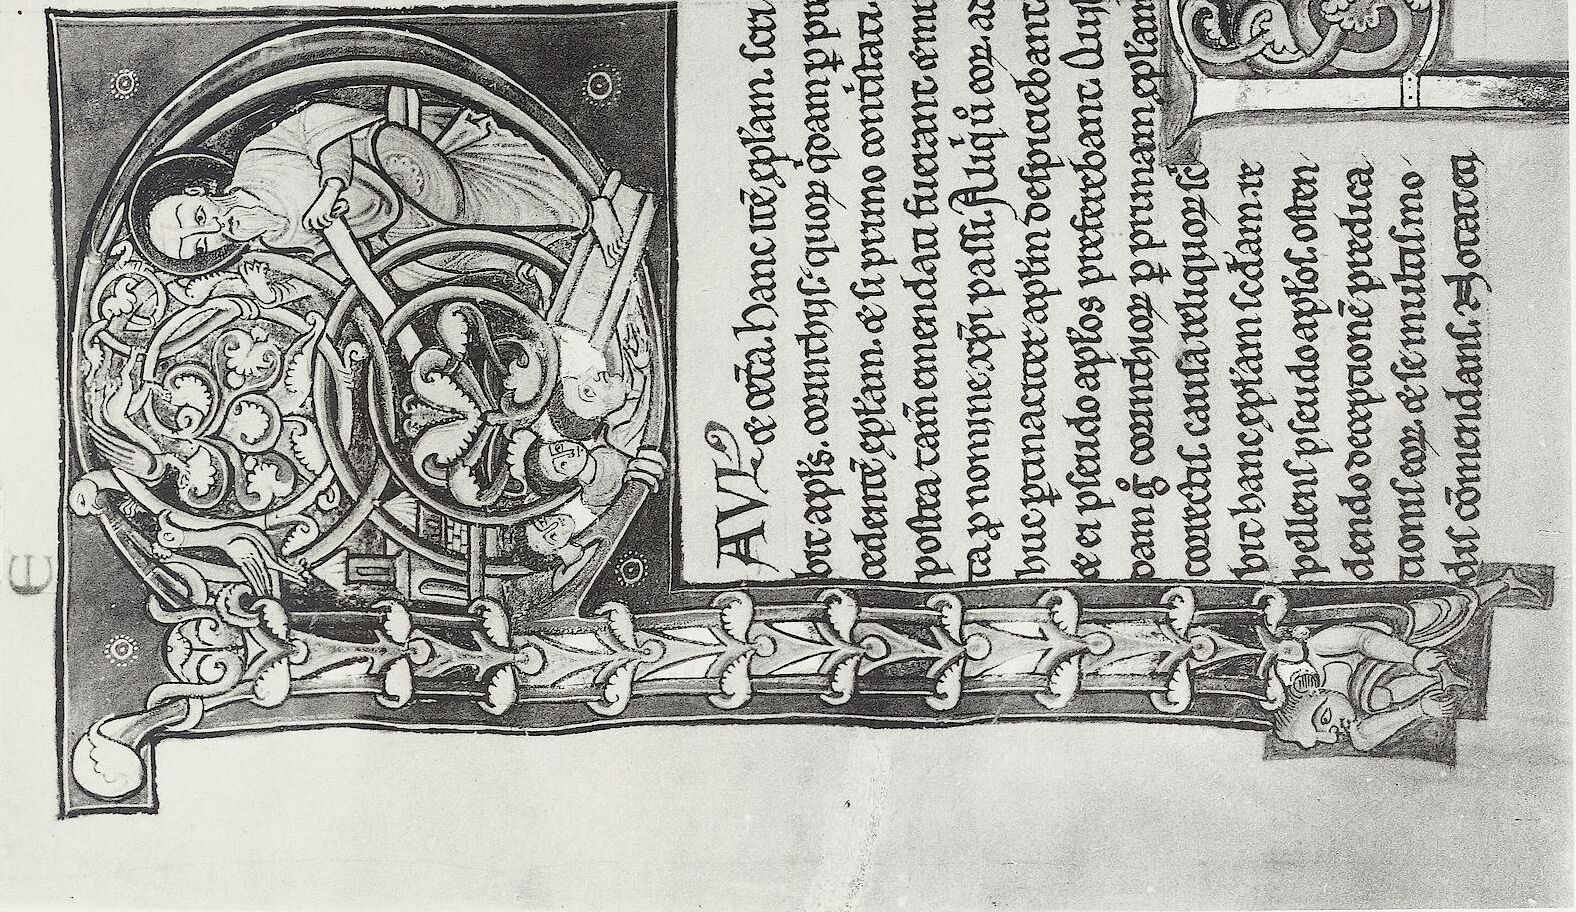 E
AVL' & cet̄a. hanc itē epl'am. scri
bit apl's. corinthiis: quoꝝ quidam ꝑ p̄
cedentē epl'am. & si primo contristati
postea tam̄ emendati fuerant. & mul
ta ꝓ nomine xp̄i passi. Aliq̇ u̇ eoꝝ ad
huc ꝑtinaciter apl'm despiciebant
& ei pseudo apl'os preferebant.
dam g̊ corinthioꝝ ꝑ primam epl'am
correctis. causa reliquoꝝ sc̄
bit hanc epl'am scd̄am. re
pellens pseudo apl'os. osten
dendo deceptionē predica
tionis eoꝝ. & se multis mo
dis cōmendans.